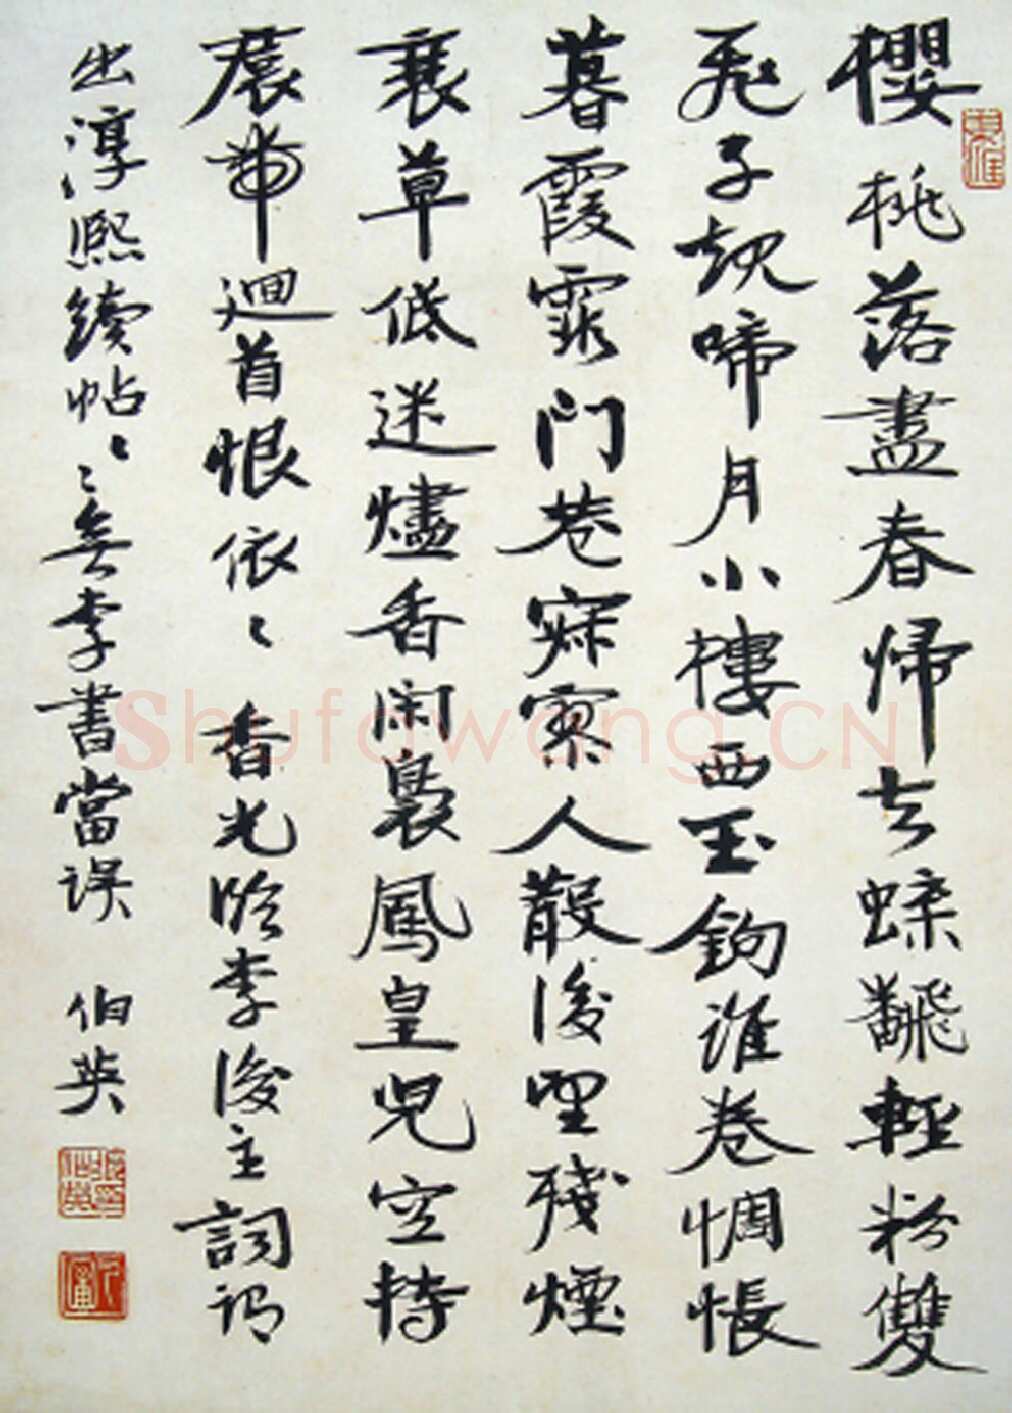 櫻桃落盡春歸去蝶翻輕粉雙
飛子規啼月小樓西玉鉤誰卷惆悵
暮霞霏門巷寂寥人散後望殘煙
衰草低迷爐香閑裊鳳皇兒空持
裙帶迴首恨依〻香光臨李後主詞謂
出淳熙續帖〻〻無李書當誤 伯英
Shufawang.CN